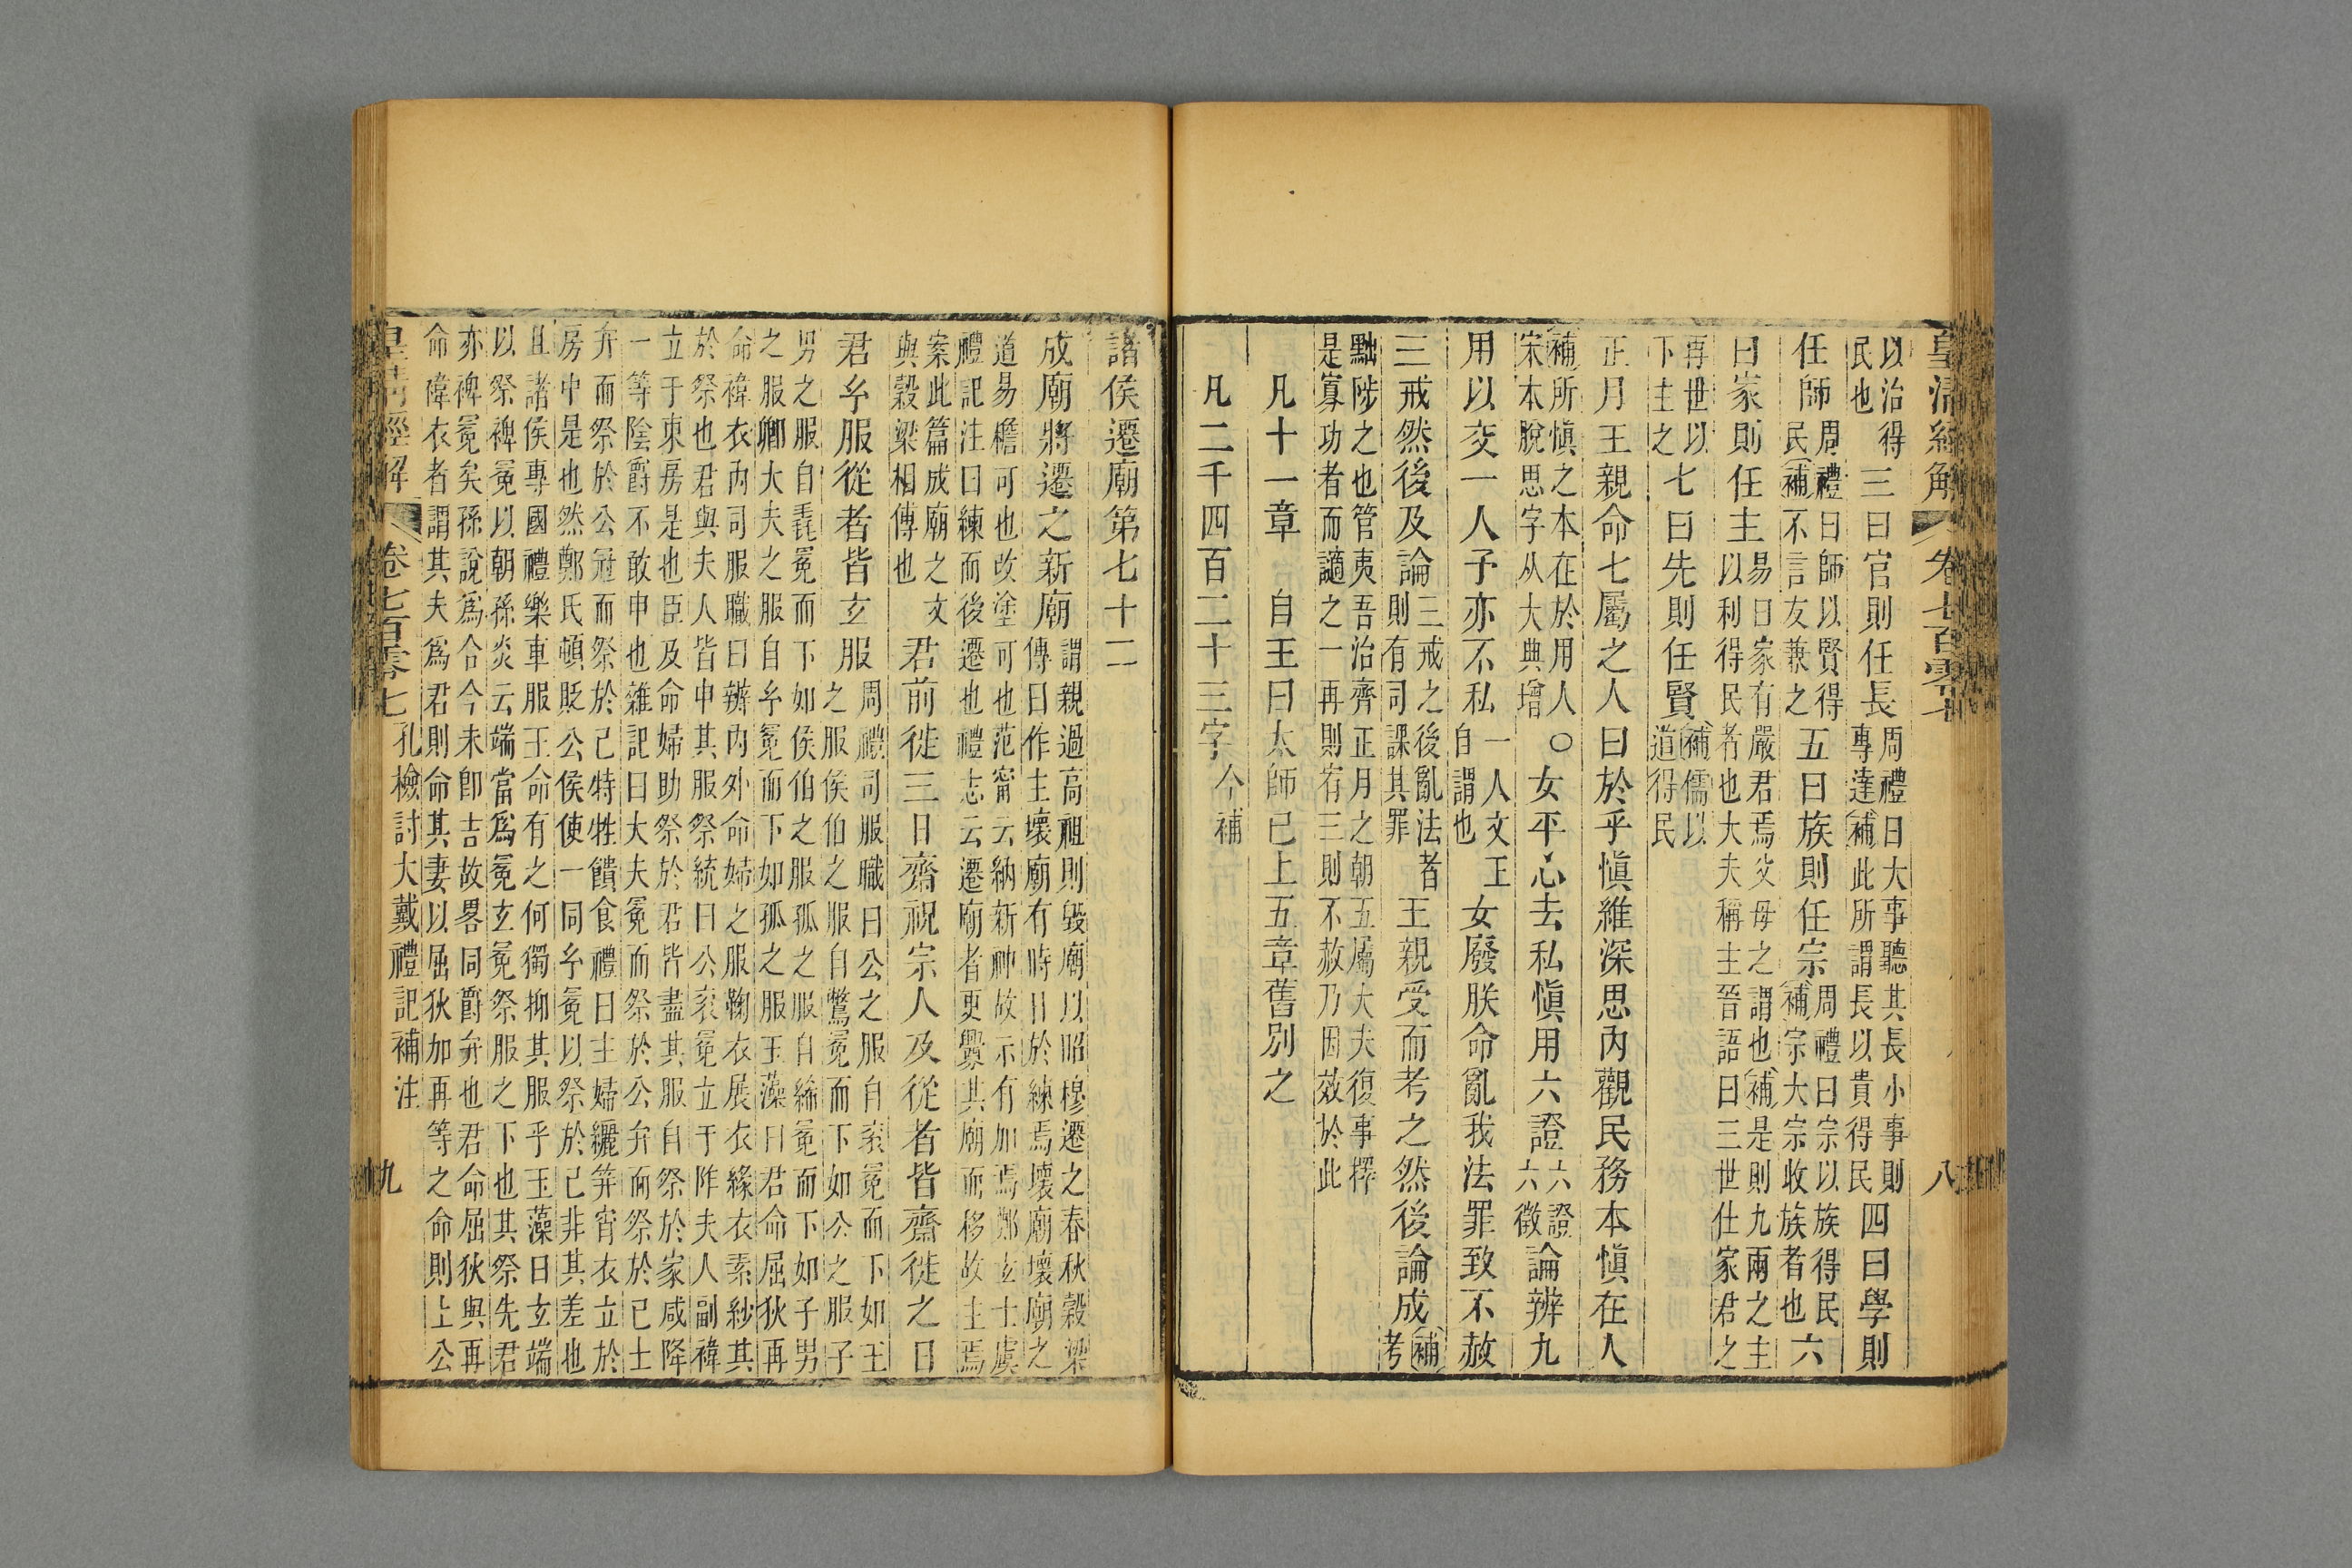 皇清經解 卷七百零七 八
以治得民也三曰官則任長周禮曰大事聽其長小事則專達補此所謂長以貴得民四曰學則
任師周禮曰師以賢得民補不言友兼之五曰族則任宗周禮曰宗以族得民補宗大宗收族者也六
曰家則任主易曰家有嚴君焉父母之謂也補是則九兩之主以利得民者也大夫稱主晉語曰三世仕家君之
再世以下主之七曰先則任賢補儒以道得民
正月王親命七屬之人曰於乎慎維深思內觀民務本慎在人
補所慎之本在於用人○宋本脫思字从大典增女平心去私慎用六證六證六徵論辨九
用以交一人予亦不私一人文王自謂也女廢朕命亂我法罪致不赦
三戒然後及論三戒之後亂法者則有司課其罪王親受而考之然後論成補考
黜陟之也管夷吾治齊正月之朝五屬大夫復事擇是寡功者而謫之一再則宥三則不赦乃因效於此
凡十一章 自王曰太師已上五章舊別之
凡二千四百二十三字今補
諸侯遷廟第七十二
成廟將遷之新廟謂親過高祖則毀廟以昭穆遷之春秋穀梁傳曰作主壞廟有時日於練焉壞廟壞廟之
道易檐可也改塗可也范甯云納新神故示有加焉鄭玄士虞禮記注曰練而後遷也禮志云遷廟者更釁其廟而移故主焉
案此篇成廟之文與穀梁相傳也君前徙三日齋祝宗人及從者皆齋徙之日
君玄服從者皆玄服周禮司服職曰公之服自袞冕而下如王之服侯伯之服自鷩冕而下如公之服子
男之服自毳冕而下如侯伯之服孤之服自絺冕而下如子男之服卿大夫之服自玄冕而下如孤之服玉藻曰君命屈狄再
命褘衣內司服職曰辨內外命婦之服鞠衣展衣緣衣素紗其於祭也君與夫人皆申其服祭統曰公袞冕立于阼夫人副褘
立于東房是也臣及命婦助祭於君皆盡其服自祭於家咸降一等陰爵不敢申也雜記曰大夫冕而祭於公弁而祭於已士
弁而祭於公冠而祭於己特牲饋食禮曰主婦纚笄宵衣立於房中是也然鄭氏頓貶公侯使一同玄冕以祭於己非其差也
且諸侯專國禮樂車服王命有之何獨抑其服乎玉藻曰玄端以祭裨冕以朝孫炎云端當爲冕玄冕祭服之下也其祭先君
亦裨冕矣孫說爲合今未卽吉故畧同爵弁也君命屈狄與再命褘衣者謂其夫爲君則命其妻以屈狄加再等之命則上公
皇清經解 卷七百零七 孔檢討大戴禮記補注 九